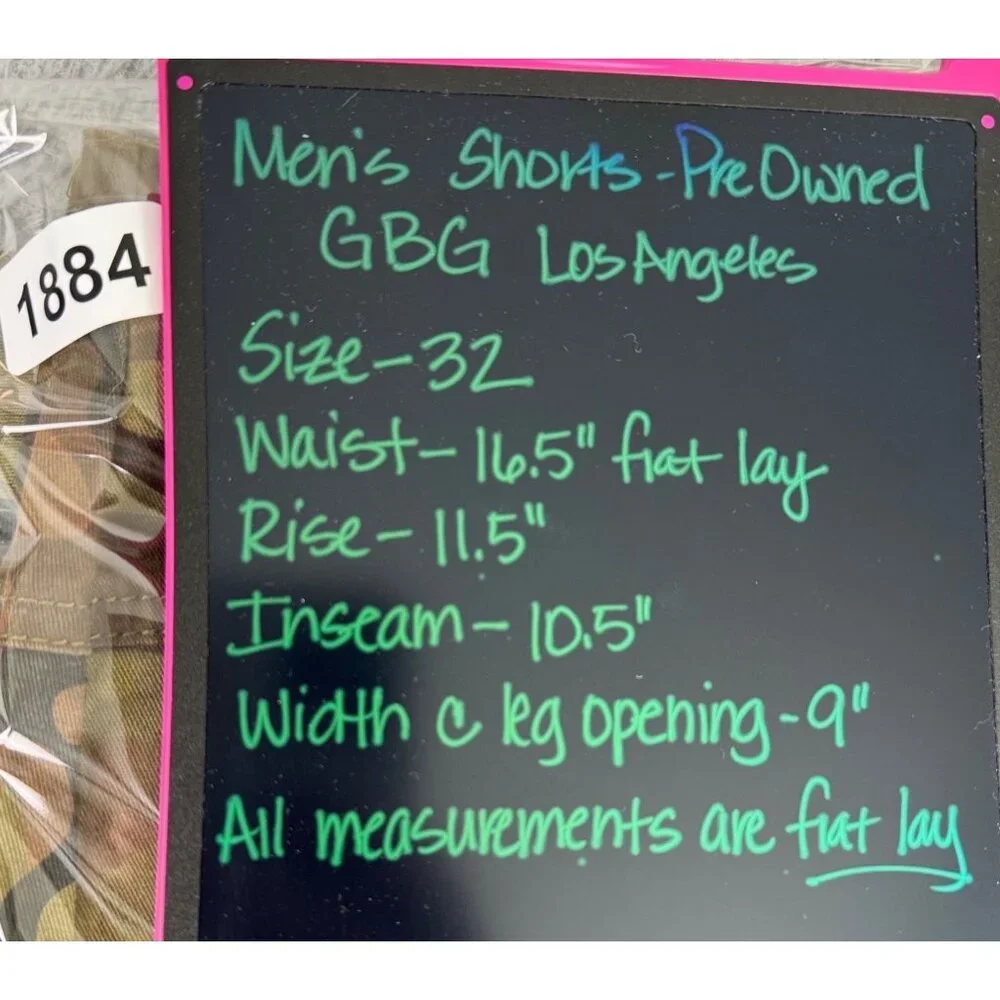 Men's Shorts - Pre Owned
GBG Los Angeles
1884
Size - 32
Waist - 16.5" flat lay
Rise - 11.5"
Inseam - 10.5"
Width @ leg opening - 9"
All measurements are flat lay